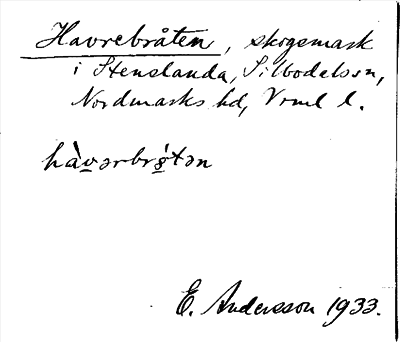 Havrebråten, skogsmark
i Stenslanda, Silbodals sn,
Nordmarks hd, Vrml l.
hàvərbrs̀tən
E. Andersson 1933.